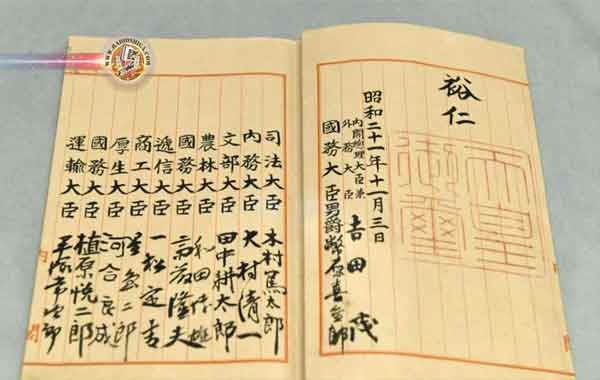 裕仁
天皇御璽
昭和二十一年十一月三日
内閣総理大臣兼
外務大臣 吉田茂
國務大臣 男爵 幣原喜重郎
司法大臣 木村篤太郎
内務大臣 大村清一
文部大臣 田中耕太郎
農林大臣 和田博雄
國務大臣 斎藤隆夫
逓信大臣 一松定吉
商工大臣 星島二郎
厚生大臣 河合良成
國務大臣 植原悦二郎
運輸大臣 平塚常次郎